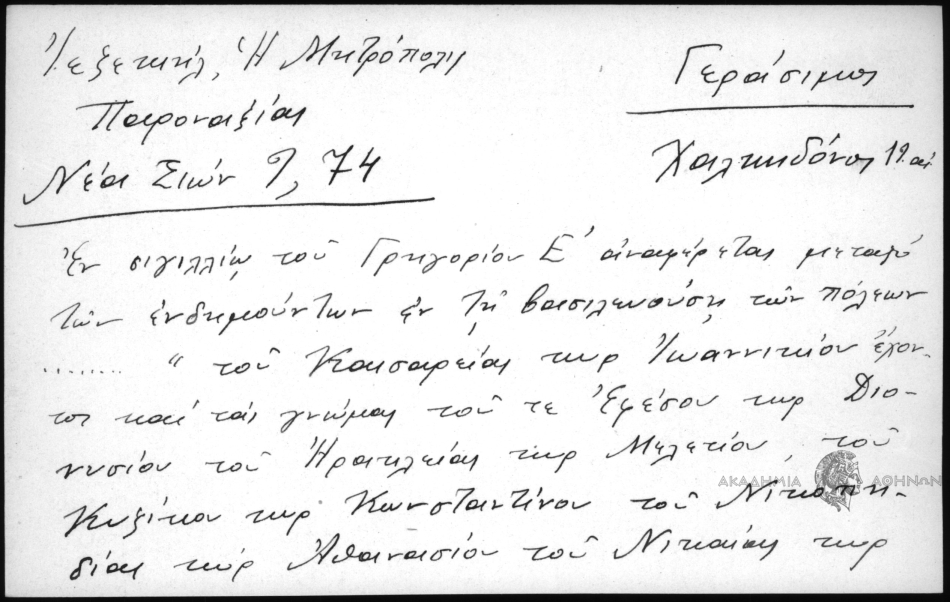 Ἰεζεκιήλ, Ἡ Μητρόπολις
Παροναξίας
Νέα Σιών 9, 74
Γεράσιμος
Χαλκηδόνος 19. αἰ
Ἐν σιγιλλίῳ τοῦ Γρηγορίου Ε΄ ἀναφέρεται μεταξύ
τῶν ἐνδημούντων ἐν τῇ βασιλευούσῃ τῶν πόλεων
........ " τοῦ Καισαρείας κυρ Ἰωαννικίου ἔχον-
τος καί τάς γνώμας τοῦ τε Ἐφέσου κυρ Διο-
νυσίου τοῦ Ἡρακλείας κυρ Μελετίου, τοῦ
Κυζίκου κυρ Κωνσταντίνου τοῦ Νικομη-
δίας κύρ Ἀθανασίου τοῦ Νικαίας κυρ
ΑΚΑΔΗΜΙΑ ΑΘΗΝΩΝ